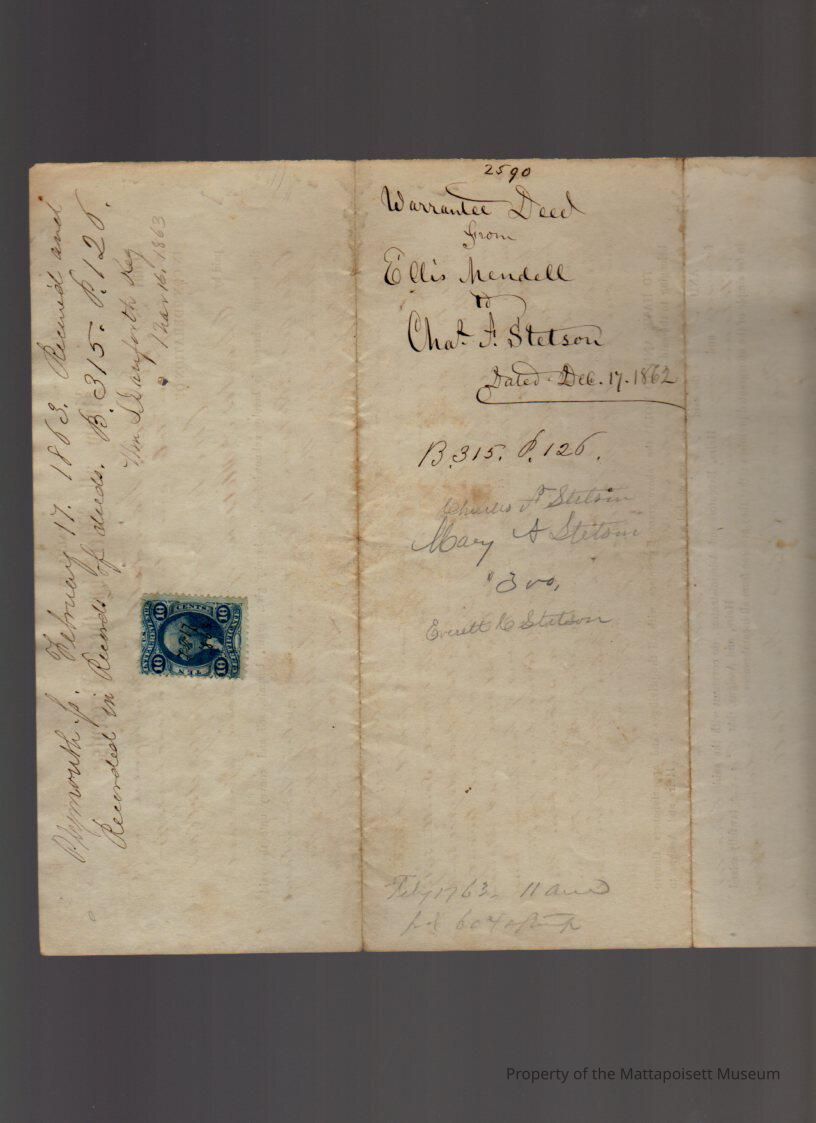 Plymouth ss. February 17. 1863. Received and
Recorded in Records of deeds. B. 315. P. 126.
Wm S. Danforth Reg
Mar 16, 1863
INTER. REVENUE
10 CENTS 10
10 TEN 10
CERTIFICATE
2590
Warrantee Deed
from
Ellis Mendell
to
Chas. F. Stetson
Dated Dec. 17. 1862
B. 315. P. 126.
Charles F Stetson
Mary A Stetson
Everett C Stetson
Property of the Mattapoisett Museum